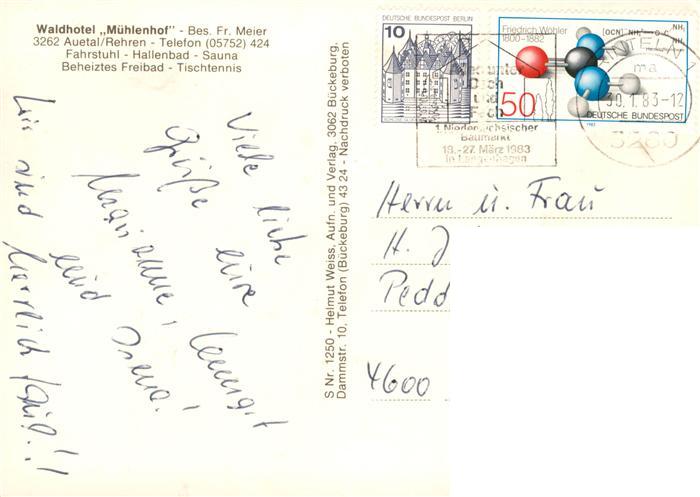 Waldhotel „Mühlenhof" - Bes. Fr. Meier
3262 Auetal/Rehren - Telefon (05752) 424
Fahrstuhl - Hallenbad - Sauna
Beheiztes Freibad - Tischtennis
Viele liebe
Grüße eure
Marianne,
und Irena!
Wir sind
herrlich faul!!
S Nr. 1250 - Helmut Weiss, Aufn. und Verlag, 3062 Bückeburg,
Dammstr. 10, Telefon (Bückeburg) 43 24 - Nachdruck verboten
DEUTSCHE BUNDESPOST BERLIN
10
Friedrich Wöhler
1800-1882
50
DEUTSCHE BUNDESPOST
und
1. Niedersächsischer
Baumarkt
19.-27. März 1983
in Langenhagen
ma
30.1.83-12
3260
Herrn u. Frau
H. J
Pedd
4600